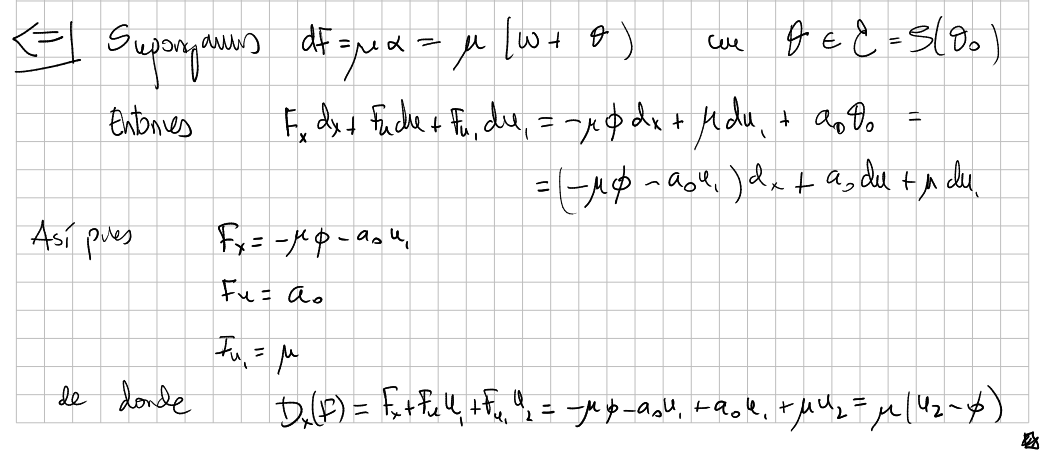 <=| Supongamos dF = μα = μ (ω + θ) con θ ∈ ℰ = S(θ₀)
Entonces Fₓ dx + Fᵤ du + F_{u₁} du₁ = -μϕ dx + μ du₁ + a₀ θ₀ =
= (-μϕ - a₀u₁) dx + a₀ du + μ du₁
Así pues Fₓ = -μϕ - a₀u₁
Fᵤ = a₀
F_{u₁} = μ
de donde Dₓ(F) = Fₓ + Fᵤ u₁ + F_{u₁} u₂ = -μϕ - a₀u₁ + a₀u₁ + μu₂ = μ(u₂ - ϕ)